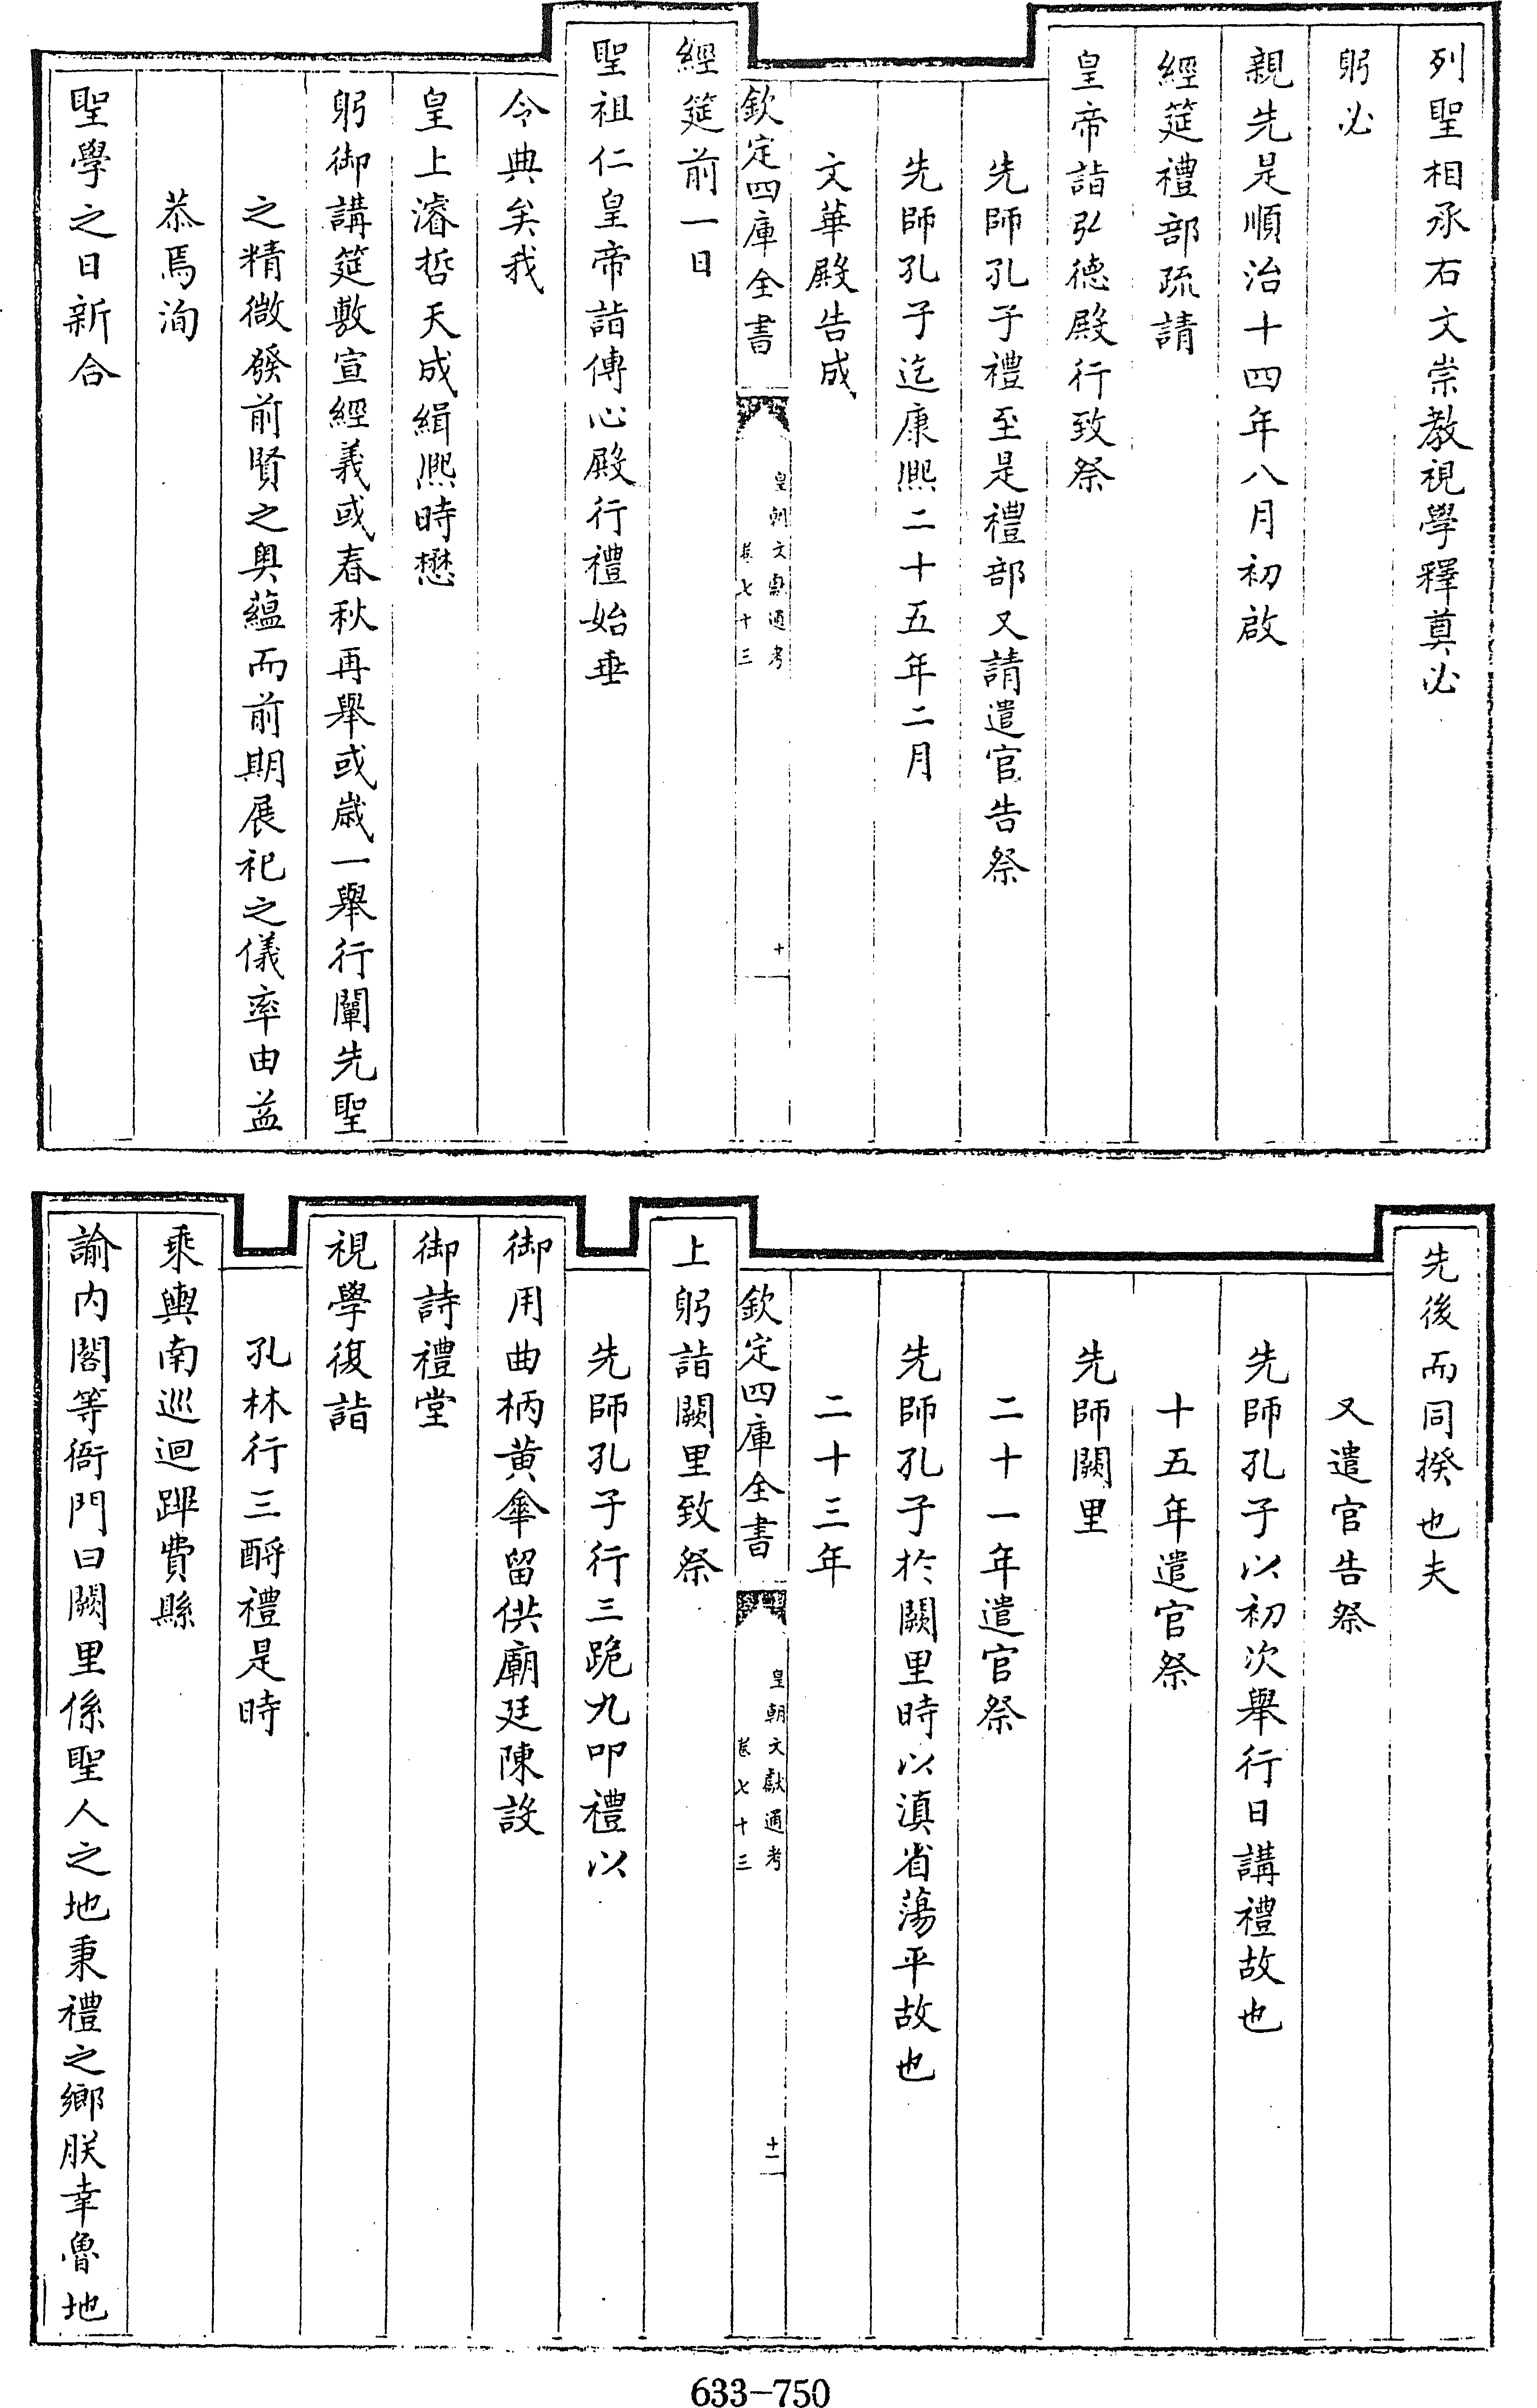 列聖相承右文崇教視學釋奠必
躬必
親先是順治十四年八月初啟
經筵禮部疏請
皇帝詣弘德殿行致祭
先師孔子禮至是禮部又請遣官告祭
先師孔子迄康熙二十五年二月
文華殿告成
欽定四庫全書
皇朝文獻通考
卷七十三
十
經筵前一日
聖祖仁皇帝詣傳心殿行禮始垂
令典矣我
皇上濬哲天成緝熙時懋
躬御講筵敷宣經義或春秋再舉或歲一舉行闡先聖
之精微發前賢之奥蘊而前期展祀之儀率由益
恭焉洵
聖學之日新合
先後而同揆也夫
又遣官告祭
先師孔子以初次舉行日講禮故也
十五年遣官祭
先師闕里
二十一年遣官祭
先師孔子於闕里時以滇省蕩平故也
二十三年
欽定四庫全書
皇朝文獻通考
卷七十三
十一
上躬詣闕里致祭
先師孔子行三跪九叩禮以
御用曲柄黃傘留供廟廷陳設
御詩禮堂
視學復詣
孔林行三酹禮是時
乘輿南巡迴蹕費縣
諭內閣等衙門曰闕里係聖人之地秉禮之鄉朕幸魯地
633-750